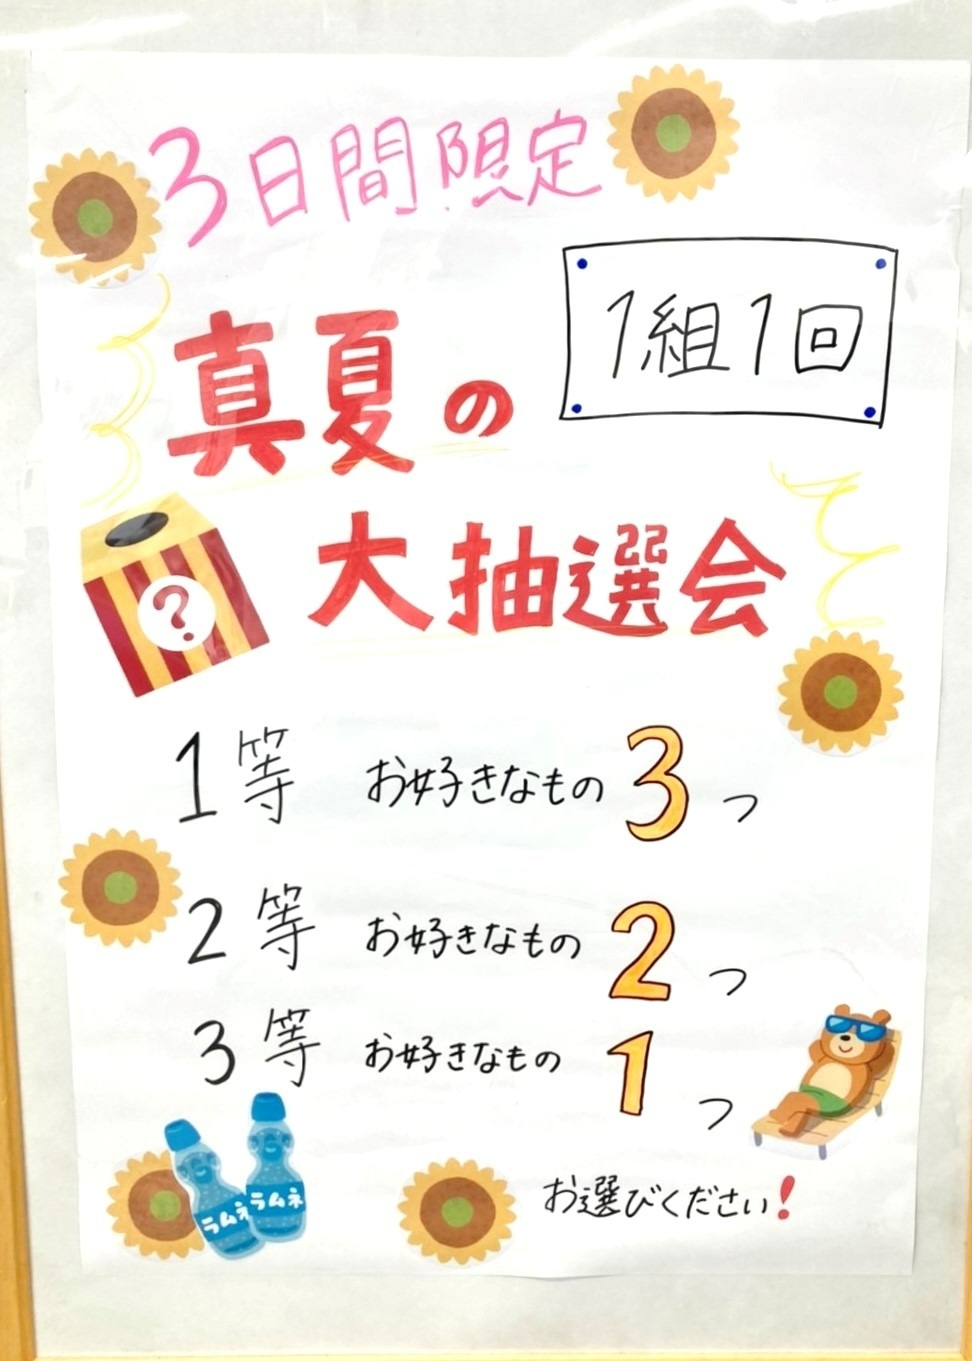 3日間限定
1組1回
真夏の
大抽選会
?
1等 お好きなもの 3つ
2等 お好きなもの 2つ
3等 お好きなもの 1つ
ラムネ
ラムネ
お選びください!